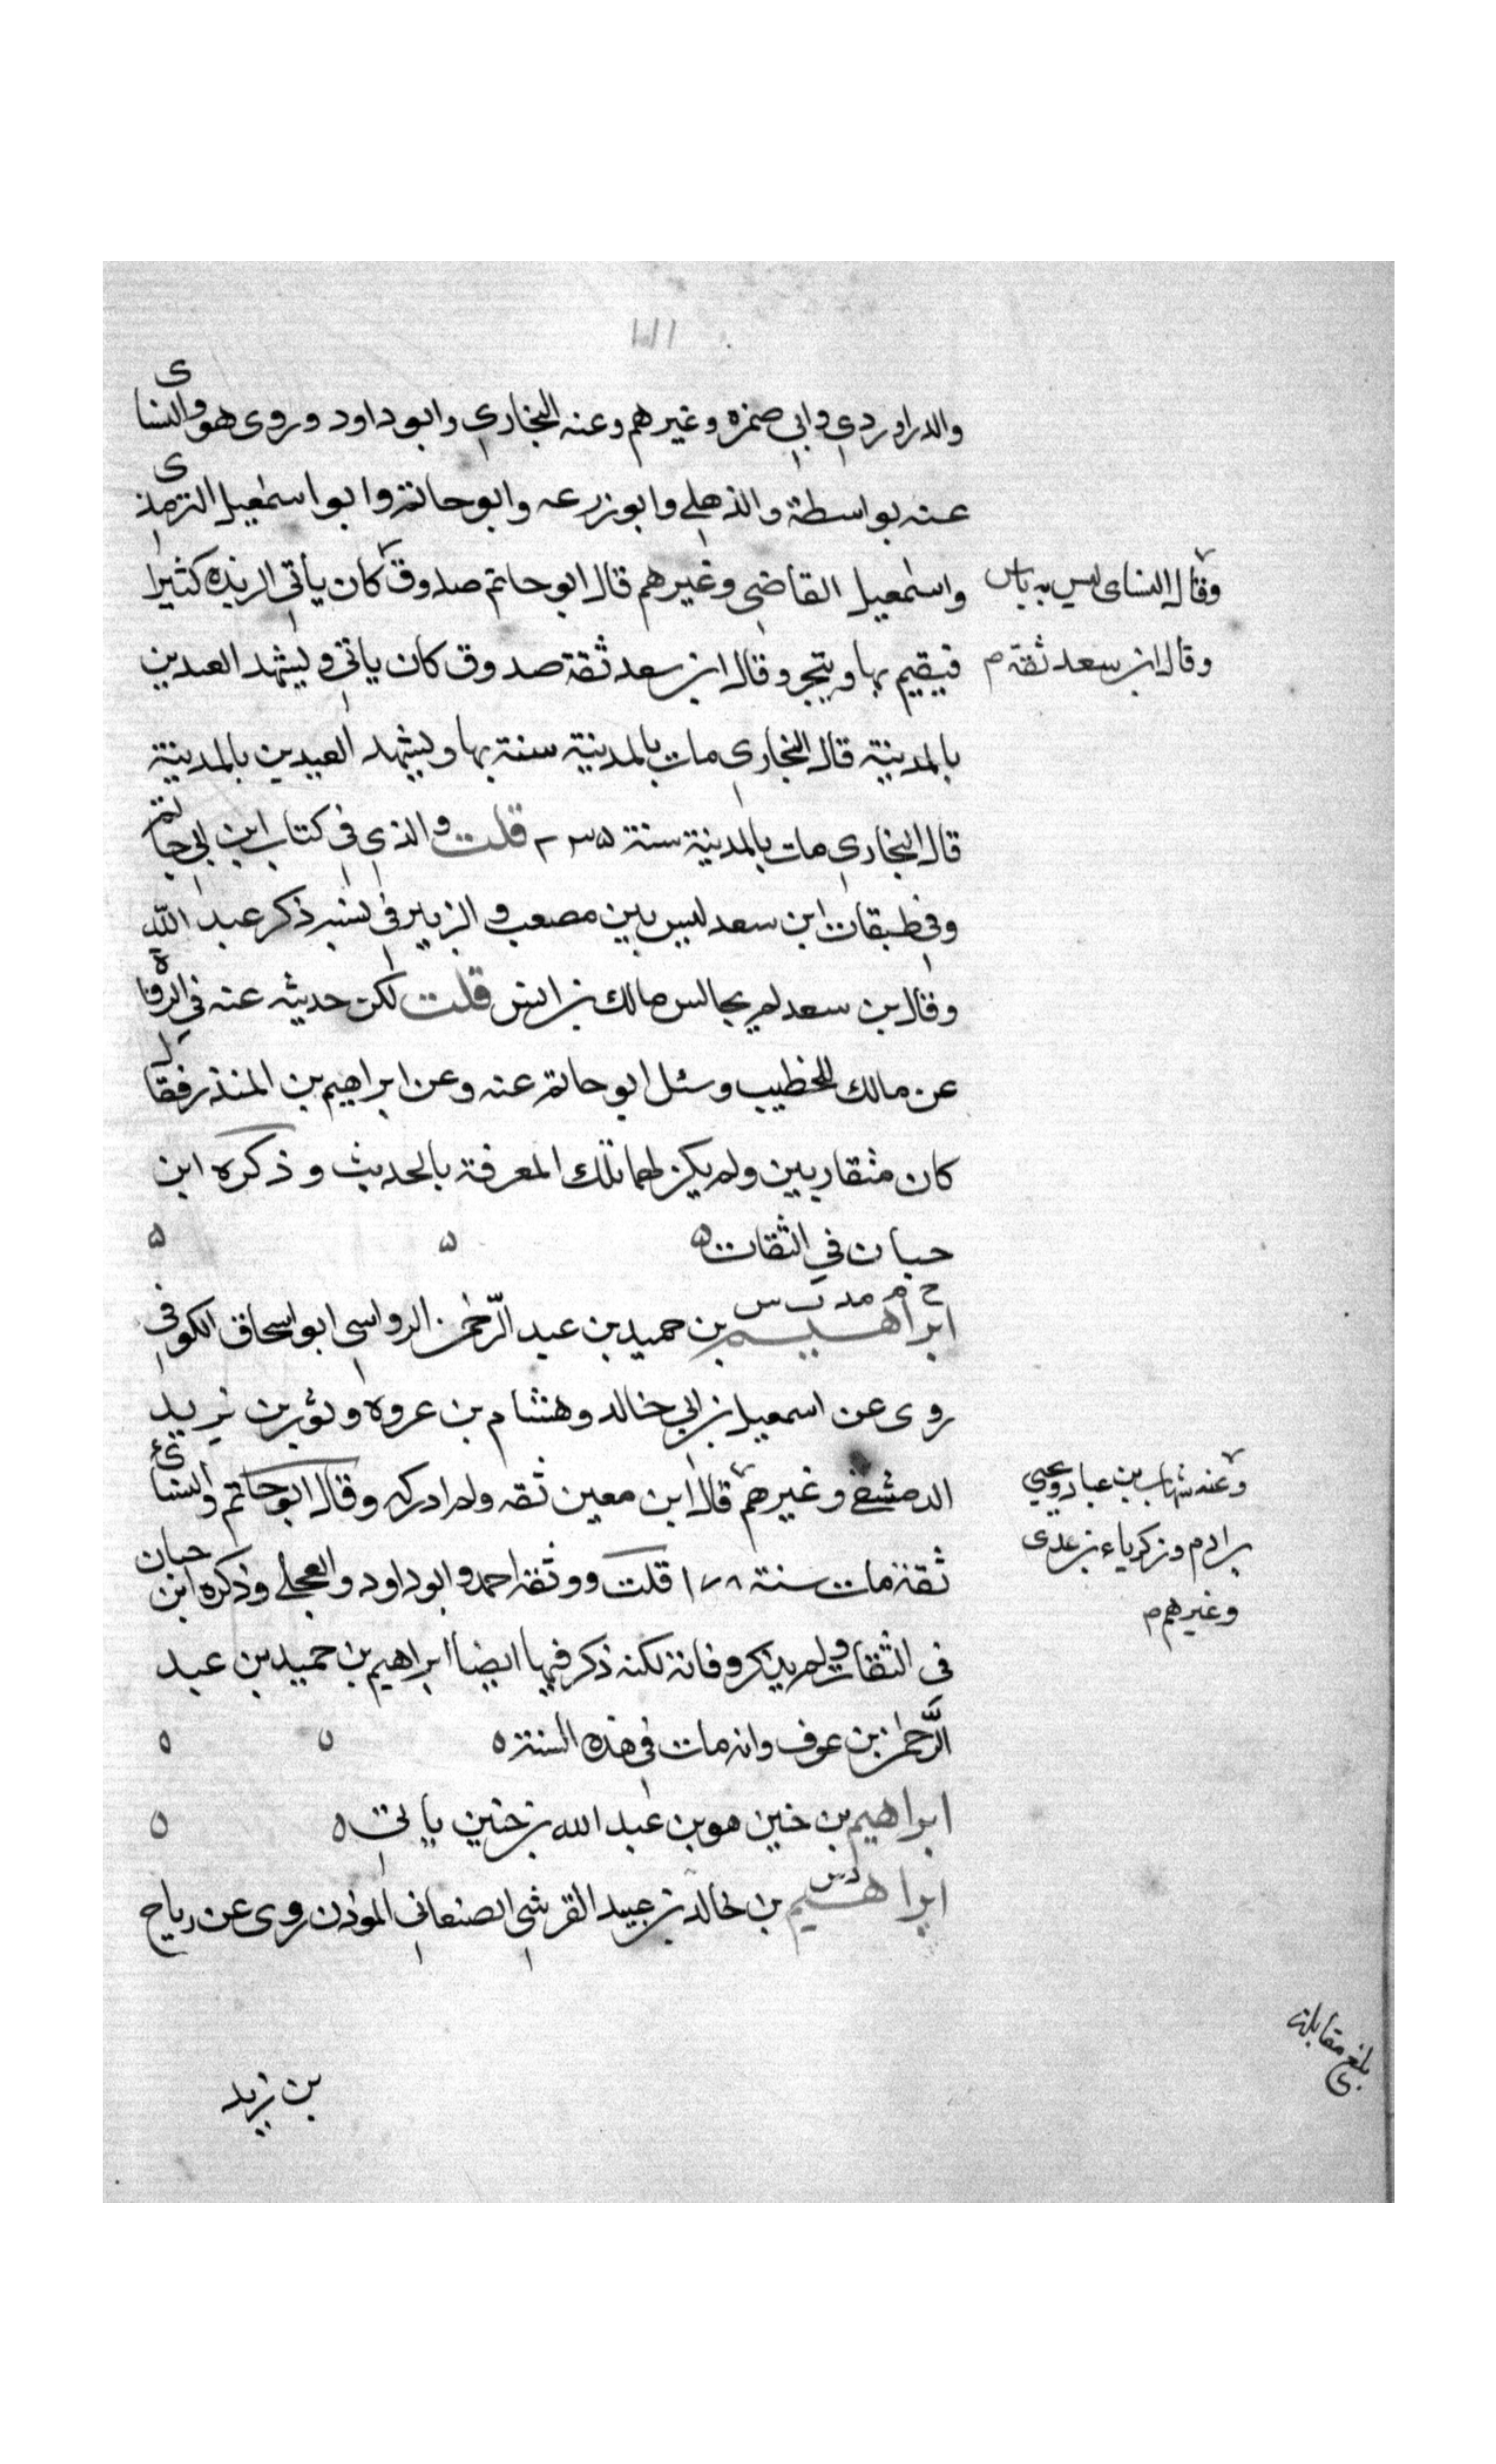 والدراوردي وابي ضمره وغيرهم وعنه البخاري وابو داود وروى هو والنساى
عنه بواسطة والذهلي وابو زرعه وابو حاتم وابو اسمعيل الترمذى
واسمعيل القاضي وغيرهم قال ابو حاتم صدوق كان يأتي الربذه كثيرا
وقال النساى ليس به باس
فيقيم بها ويتجر وقال ابن سعد ثقة صدوق كان ياتي وليشهد العيدين
وقال ابن سعد ثقة م
بالمدينة قال البخاري مات بالمدينة سنة بها ويشهد العيدين بالمدينة
قال البخاري مات بالمدينة سنة ٢٣٥ قلت والذي في كتاب ابن ابي حاتم
وفي طبقات ابن سعد ليس بين مصعب والزبير في نسبه ذكر عبد الله
وقال بن سعد لم يجالس مالك بن انس قلت لكن حديثه عنه في الرواة
عن مالك للخطيب وسئل ابو حاتم عنه وعن ابراهيم بن المنذر فقال
كان متقاربين ولم يكن لهما تلك المعرفة بالحديث وذكره ابن
حبان في الثقات ۵ ۵ ۵
خ م مد ت س
ابراهيم بن حميد بن عبد الرّحمن الرواسي ابو اسحاق الكوفي
روى عن اسمعيل بن ابي خالد وهشام بن عروه وثور بن يزيد
الدمشقي وغيرهم قال ابن معين ثقه ولم ادركه وقال ابو حاتم والنسائ
وعنه شهاب بن عباد ويحيى
بن ادم وزكرياء بن عدى
وغيرهم م
ثقة مات سنة ١٧٨ قلت ووثقه احمد وابو داود والعجلي وذكره ابن حبان
في الثقات ولم يذكر وفاته لكنه ذكر فيها ايضا ابراهيم بن حميد بن عبد
الرَّحمن بن عوف وانه مات في هذه السنة ٥ ٥ ٥
ابراهيم بن حنين هو بن عبد الله بن حنين ياتي ٥ ٥
د س
ابراهيم بن خالد بن عبيد القرشي الصنعاني الموذن روى عن رباح
بن زيد
بلغ مقابلة